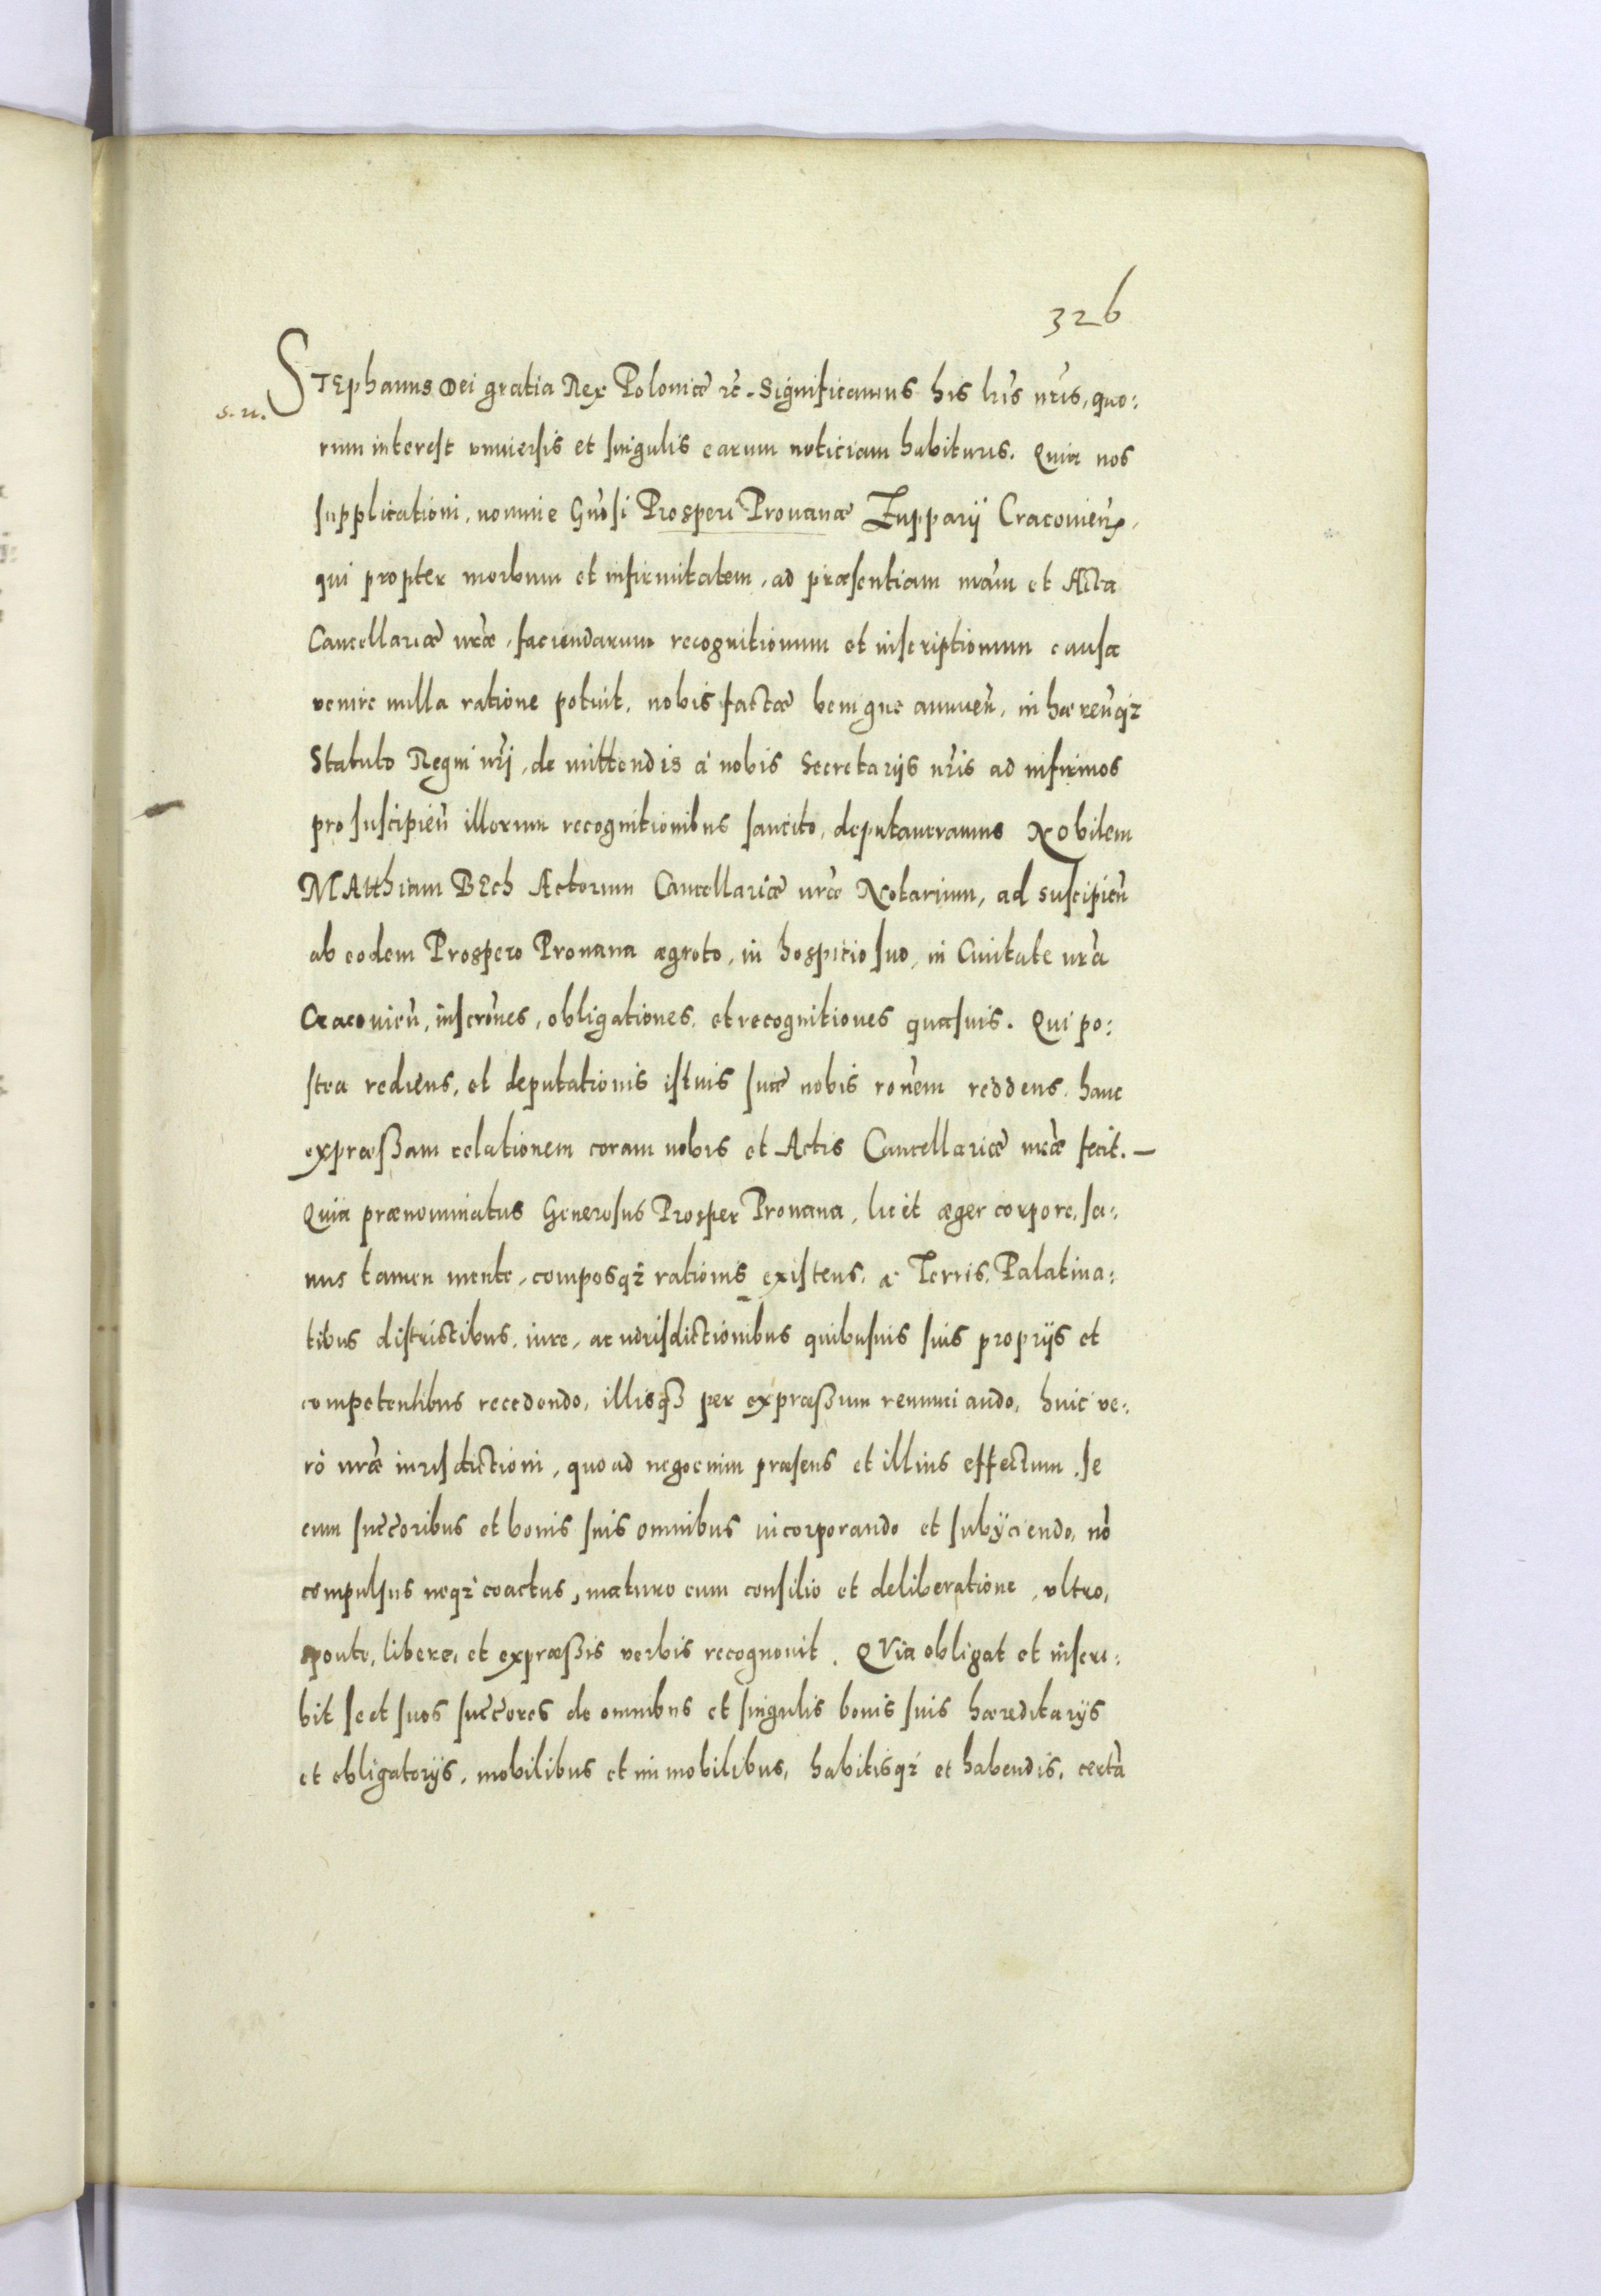 326
STEphanus Dei gratia Rex Poloniæ etc. Significamus his lr̃is nr̃is, quo:
s. n.
rum interest vniuersis et singulis earum noticiam habituris. Quia nos
supplicationi, nomine Gn̄osi Prosperi Prouanæ Zupparij Cracovien̄,
qui propter morbum et infirmitatem, ad præsentiam nr̄am et Acta
Cancellariæ nr̄æ, faciendarum recognitionum et inscriptionum causa
venire nulla ratione potuit, nobis factæ benigne annuen̄, inhæren̄qȝ
Statuto Regni nr̄j, de mittendis à nobis Secretarijs nr̄is ad infirmos
pro suscipien̄ illorum recognitionibus sancito, deputaueramus Nobilem
MAtthiam BEch Actorum Cancellariæ nr̄æ Notarium, ad suscipien̄
ab eodem Prospero Prouana ægroto, in hospitio suo, in Ciuitate nr̄a
Cracouien̄, inscrōnes, obligationes, et recognitiones quasuis. Qui po:
stea rediens, et deputationis istius suæ nobis ron̄em reddens, hanc
expræßam relationem coram nobis et Actis Cancellariæ nr̄æ fecit. —
Quia prænominatus Generosus Prosper Prouana, licet æger corpore, sa:
nus tamen mente, composqȝ rationis existens, à Terris, Palatina:
tibus districtibus, iure, ac iurisdictionibus quibusuis suis proprijs et
competentibus recedendo, illisqȝ per expræßum renunciando, huic ve:
rò nr̄æ iurisdictioni, quo ad negocium præsens et illius effectum, se
cum succ̄oribus et bonis suis omnibus incorporando et subijciendo, nō
compulsus neqȝ coactus, maturo cum consilio et deliberatione, vltro,
sponte, libere, et expræßis verbis recognouit. QVia obligat et inscri:
bit se et suos succ̄ores de omnibus et singulis bonis suis hæreditarijs
et obligatorijs, mobilibus et immobilibus, habitisqȝ et habendis, certà